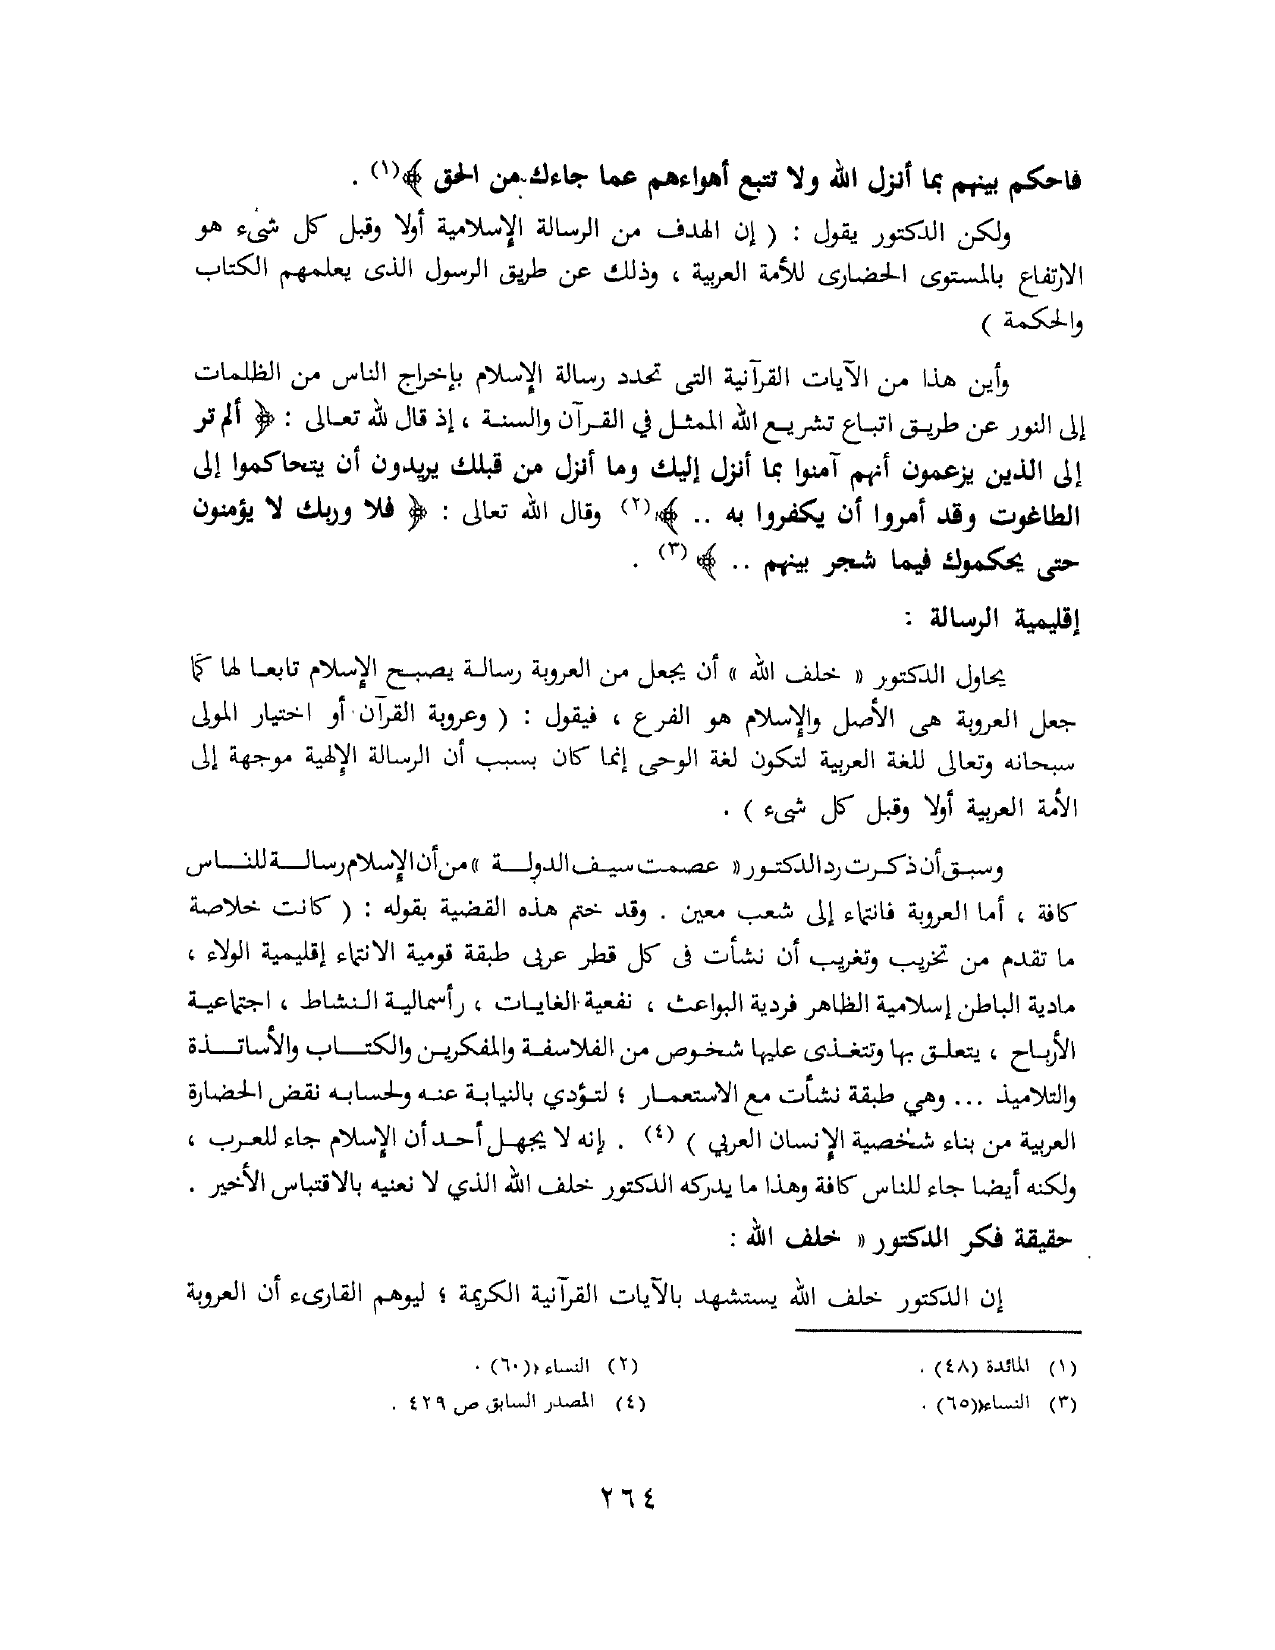 فاحكم بينهم بما أنزل الله ولا تتبع أهواءهم عما جاءك من الحق ﴾(١) .
ولكن الدكتور يقول : ( إن الهدف من الرسالة الإسلامية أولا وقبل كل شىء هو
الارتفاع بالمستوى الحضارى للأمة العربية ، وذلك عن طريق الرسول الذى يعلمهم الكتاب
والحكمة )
وأين هذا من الآيات القرآنية التى تحدد رسالة الإسلام بإخراج الناس من الظلمات
إلى النور عن طريق اتباع تشريع الله الممثل في القرآن والسنة ، إذ قال لله تعالى : ﴿ ألم تر
إلى الذين يزعمون أنهم آمنوا بما أنزل إليك وما أنزل من قبلك يريدون أن يتحاكموا إلى
الطاغوت وقد أمروا أن يكفروا به .. ﴾(٢) وقال الله تعالى : ﴿ فلا وربك لا يؤمنون
حتى يحكموك فيما شجر بينهم .. ﴾(٣) .
إقليمية الرسالة :
يحاول الدكتور « خلف الله » أن يجعل من العروبة رسالة يصبح الإسلام تابعا لها كما
جعل العروبة هى الأصل والإسلام هو الفرع ، فيقول : ( وعروبة القرآن أو اختيار المولى
سبحانه وتعالى للغة العربية لتكون لغة الوحى إنما كان بسبب أن الرسالة الإلهية موجهة إلى
الأمة العربية أولا وقبل كل شىء ) .
وسبق أن ذكرت رد الدكتور « عصمت سيف الدولة » من أن الإسلام رسالة للناس
كافة ، أما العروبة فانتماء إلى شعب معين . وقد ختم هذه القضية بقوله : ( كانت خلاصة
ما تقدم من تخريب وتغريب أن نشأت فى كل قطر عربى طبقة قومية الانتماء إقليمية الولاء ،
مادية الباطن إسلامية الظاهر فردية البواعث ، نفعية الغايات ، رأسمالية النشاط ، اجتماعية
الأرباح ، يتعلق بها وتتغذى عليها شخوص من الفلاسفة والمفكرين والكتاب والأساتذة
والتلاميذ ... وهي طبقة نشأت مع الاستعمار ؛ لتؤدي بالنيابة عنه ولحسابه نقض الحضارة
العربية من بناء شخصية الإنسان العربي ) (٤) . إنه لا يجهل أحد أن الإسلام جاء للعرب ،
ولكنه أيضا جاء للناس كافة وهذا ما يدركه الدكتور خلف الله الذي لا نعنيه بالاقتباس الأخير .
حقيقة فكر الدكتور « خلف الله :
إن الدكتور خلف الله يستشهد بالآيات القرآنية الكريمة ؛ ليوهم القارىء أن العروبة
(١) المائدة (٤٨) .
(٢) النساء (٦٠) .
(٣) النساء (٦٥) .
(٤) المصدر السابق ص ٤٢٩ .
٢٦٤